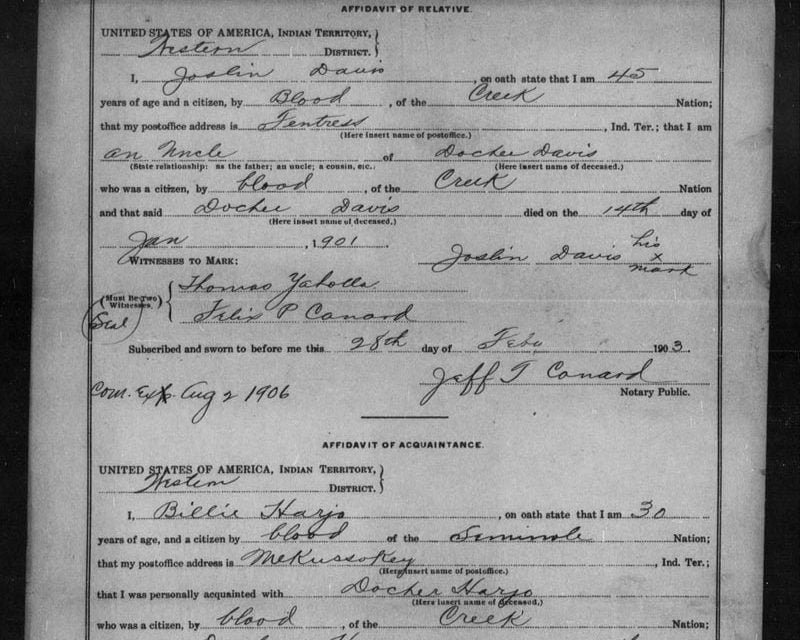 AFFIDAVIT OF RELATIVE.
UNITED STATES OF AMERICA, INDIAN TERRITORY,
Western DISTRICT.
I, Joslin Davis, on oath state that I am 45
years of age and a citizen, by Blood, of the Creek Nation;
that my postoffice address is Fentress, Ind. Ter.; that I am
(Here insert name of postoffice.)
an Uncle of Dochee Davis
(State relationship: as the father; an uncle; a cousin, etc. (Here insert name of deceased.)
who was a citizen, by blood, of the Creek Nation
and that said Dochee Davis died on the 14th day of
(Here insert name of deceased.)
Jan, 1901.
WITNESSES TO MARK: Joslin Davis his x mark
(Must be Two Witnesses.) Thomas Yaholla
(Seal) Felix P Canard
Subscribed and sworn to before me this 28th day of Feby 1903.
Jeff T Canard
Com. Exp. Aug 2 1906 Notary Public.
AFFIDAVIT OF ACQUAINTANCE.
UNITED STATES OF AMERICA, INDIAN TERRITORY,
Western DISTRICT.
I, Billie Harjo, on oath state that I am 30
years of age, and a citizen by blood of the Seminole Nation;
that my postoffice address is Mekussokey, Ind. Ter.;
(Here insert name of postoffice.)
that I was personally acquainted with Docher Harjo
(Here insert name of deceased.)
who was a citizen, by blood, of the Creek Nation;